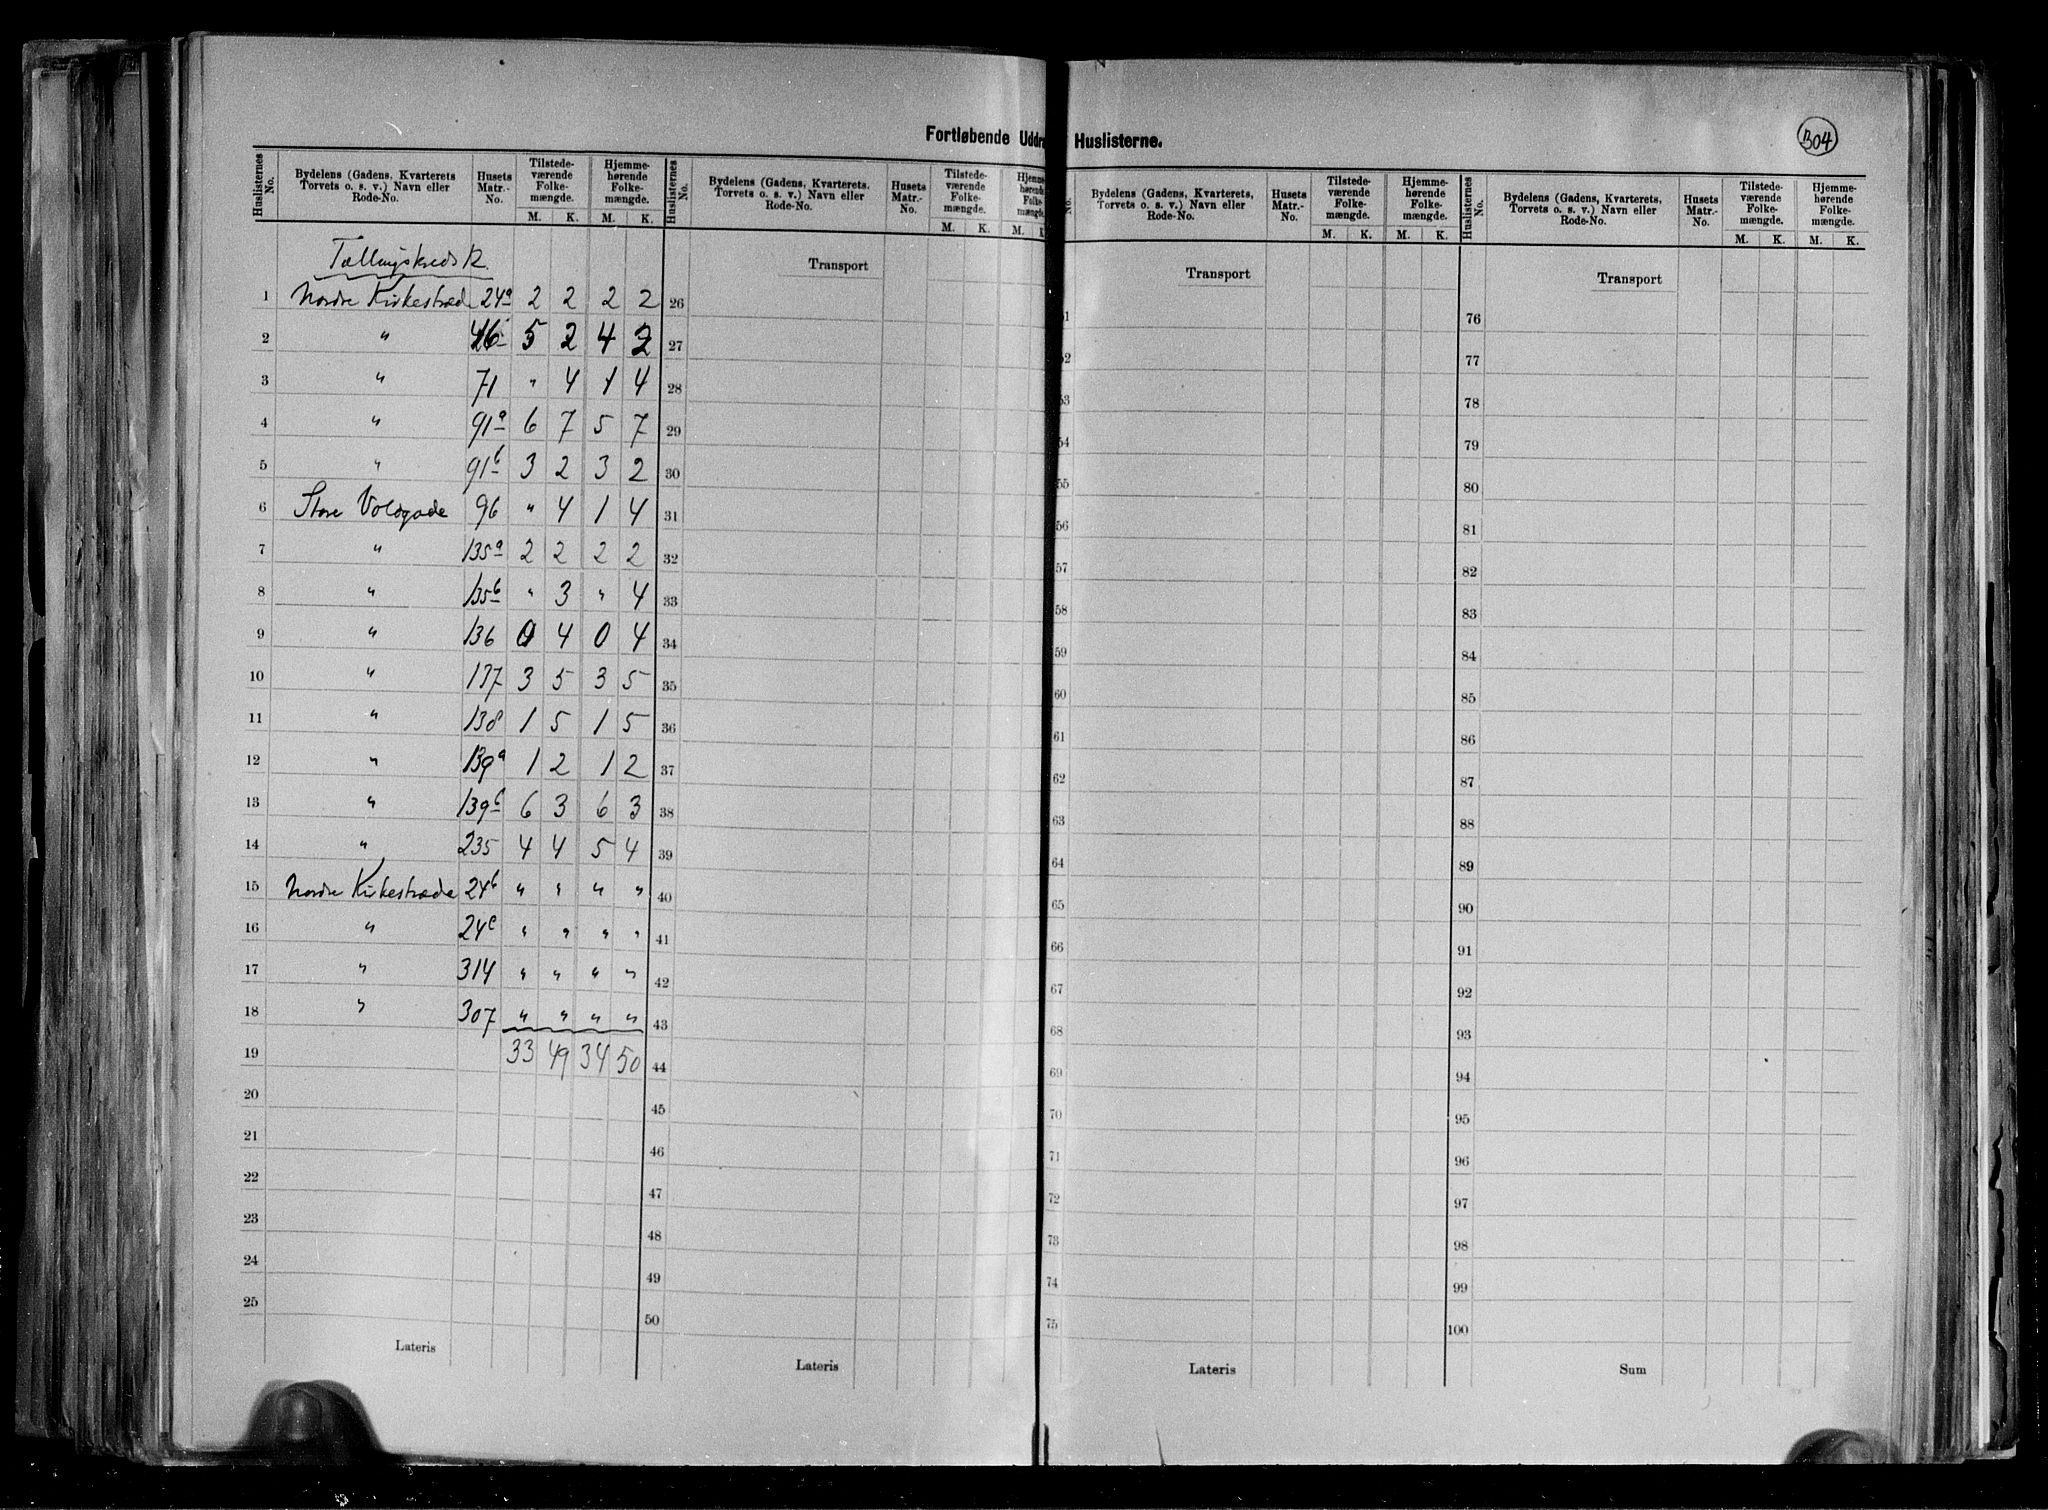 Fortløbende Uddr Huslisterne.
304
Huslisternes No. | Bydelens (Gadens, Kvarterets Torvets o. s. v.) Navn eller Rode-No. | Husets Matr.-No. | Tilstede-værende Folke-mængde. M. K. | Hjemme-hørende Folke-mængde. M. K.
Huslisternes No. | Bydelens (Gadens, Kvarterets, Torvets o. s. v.) Navn eller Rode-No. | Husets Matr.-No. | Tilstede-værende Folke-mængde. M. K. | Hjemme hørende Folke-mængde. M. K
No. | Bydelens (Gadens, Kvarterets, Torvets o. s. v.) Navn eller Rode-No. | Husets Matr.-No. | Tilstede-værende Folke-mængde. M. K. | Hjemme-hørende Folke-mængde. M. K.
Huslisternes No. | Bydelens (Gadens, Kvarterets, Torvets o. s. v.) Navn eller Rode-No. | Husets Matr.-No. | Tilstede-værende Folke-mængde. M. K. | Hjemme-hørende Folke-mængde. M. K.
Tællingskreds 12.
1 Nordre Kirkestræde 24a 2 2 2 2
2 " 5 2 4 2
3 " 71 " 4 1 4
4 " 91a 6 7 5 7
5 " 91b 3 2 3 2
6 Store Voldgade 96 " 4 1 4
7 " 135a 2 2 2 2
8 " 135b " 3 " 4
9 " 136 0 4 0 4
10 " 137 3 5 3 5
11 " 138 1 5 1 5
12 " 139a 1 2 1 2
13 " 139b 6 3 6 3
14 " 235 4 4 5 4
15 Nordre Kirkestræde 24b " " " "
16 " 24c " " " "
17 " 314 " " " "
18 " 307 " " " "
19 33 49 34 50
20
21
22
23
24
25
Lateris
Transport
26
27
28
29
30
31
32
33
34
35
36
37
38
39
40
41
42
43
44
45
46
47
48
49
50
Lateris
Transport
1
52
53
54
55
56
57
58
59
60
61
62
63
64
65
66
67
68
69
70
71
72
73
74
75
Lateris
Transport
76
77
78
79
80
81
82
83
84
85
86
87
88
89
90
91
92
93
94
95
96
97
98
99
100
Sum